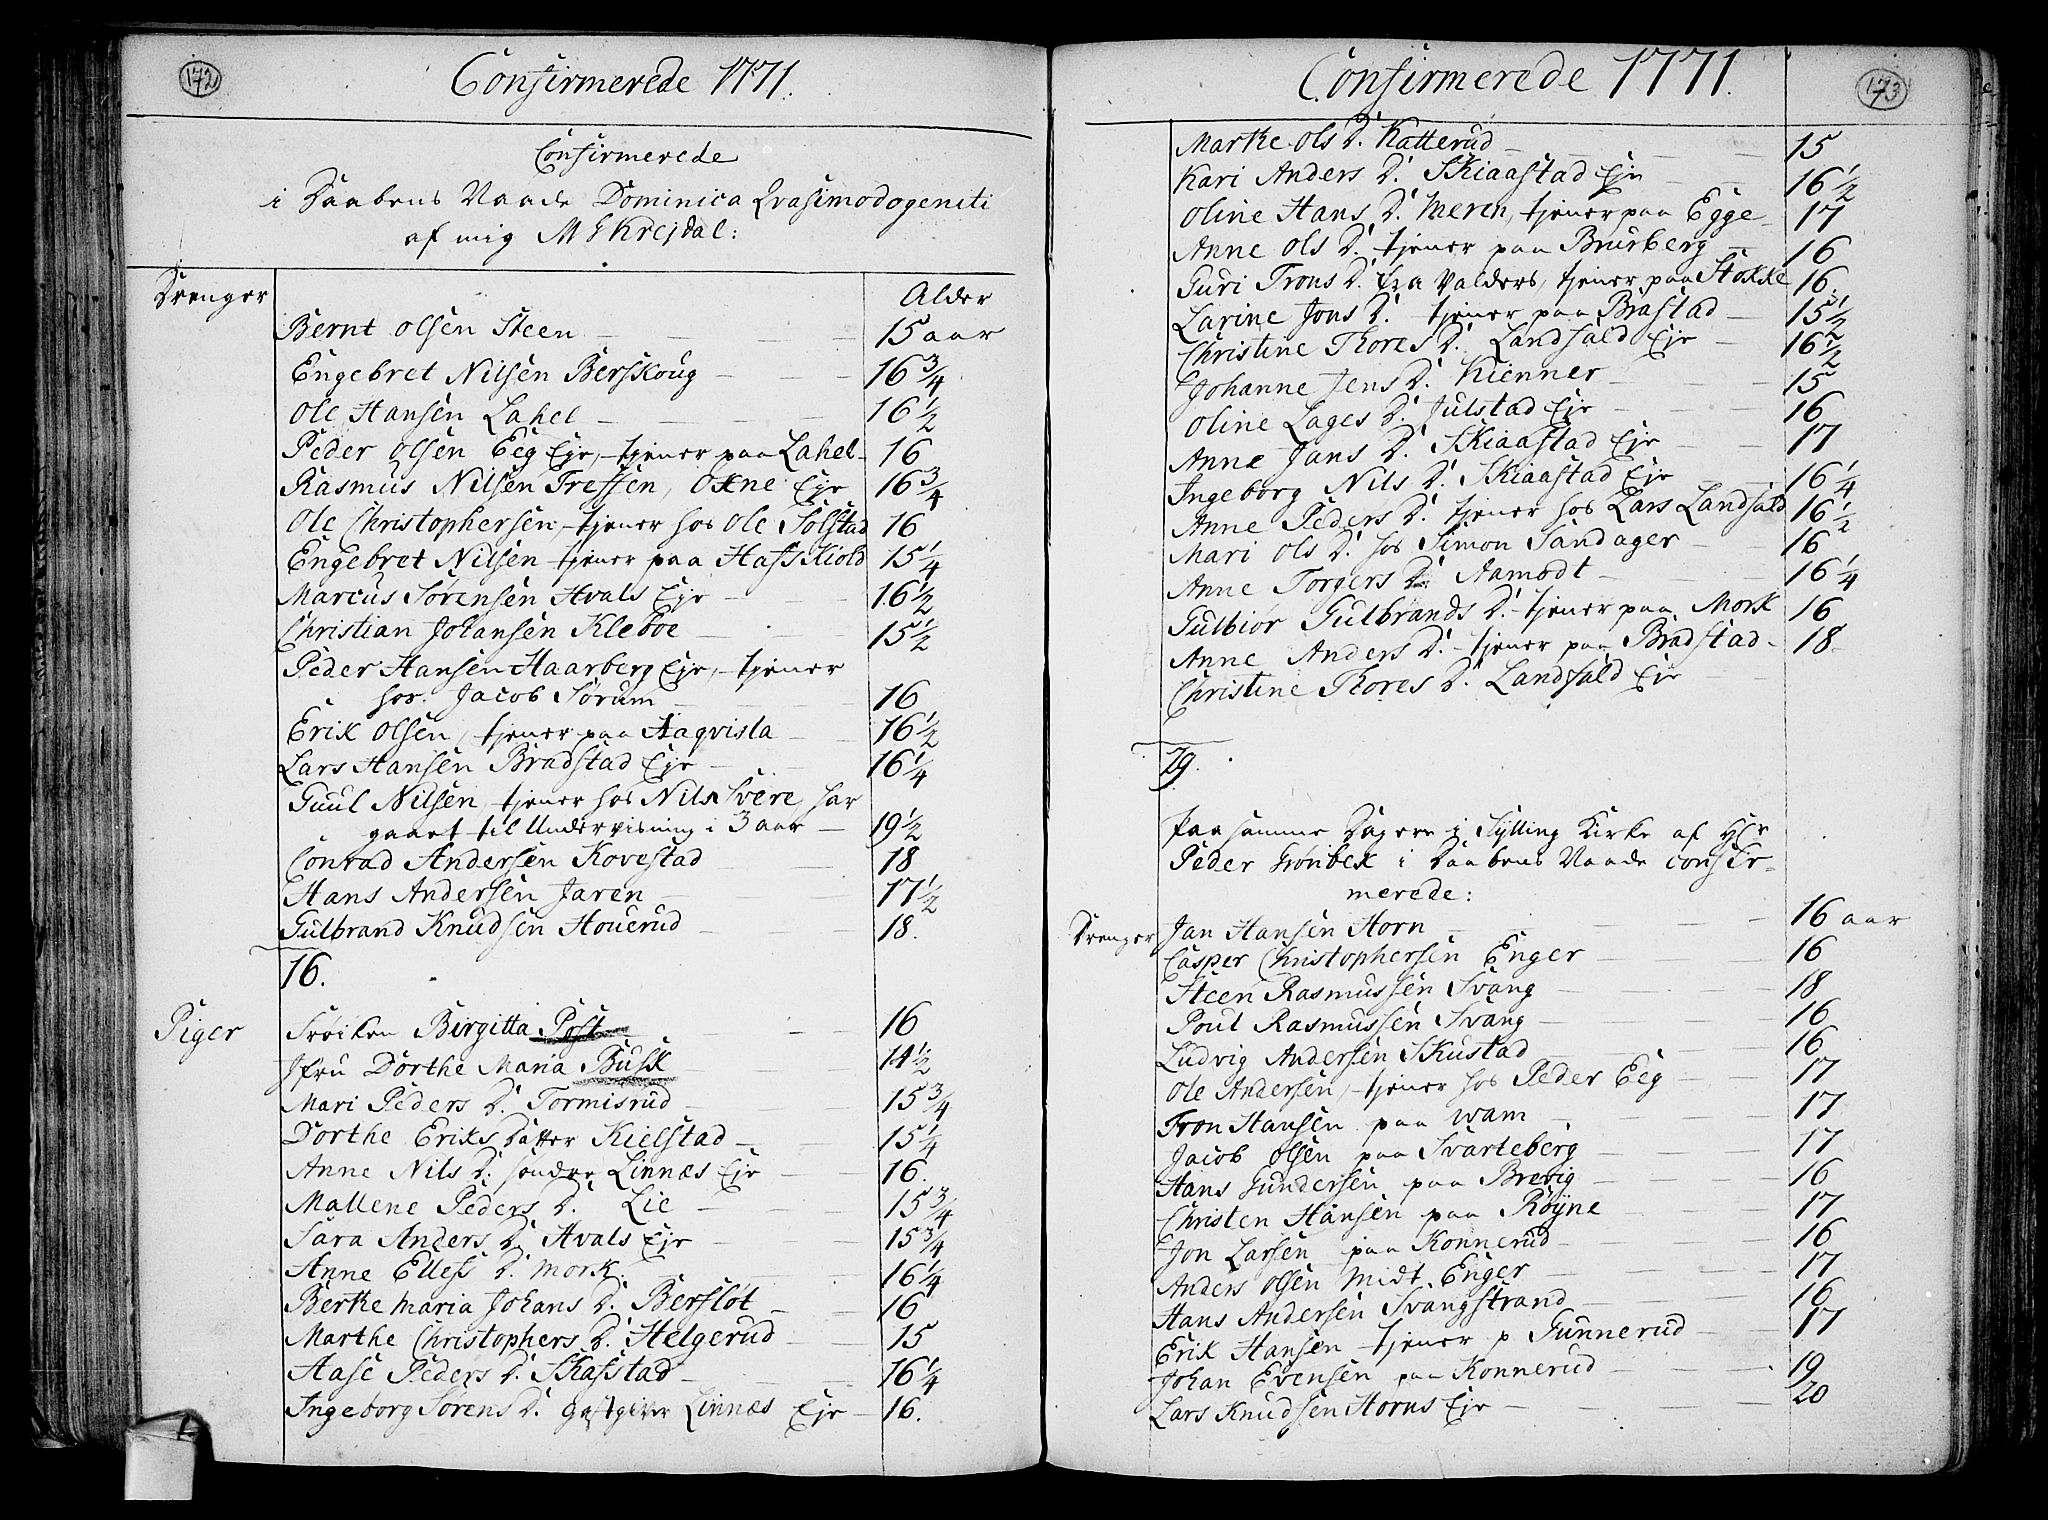 172
Confirmerede 1771.
Confirmerede
i Daabens Naade Dominica Qvasimodogeniti
af mig
Drenger
Alder
Bernt Olsen Steen 15 aar
Engebret Nilsen Berskoug 16 3/4
Ole Hansen Lahel 16 1/2
Peder Olsen Eeg Eje, tjener paa Lahel 16
Rasmus Nilsen Treffen, Oxne Eje 16 3/4
Ole Christophersen, tjener hos Ole Solstad 16
Engebret Nilsen tjener paa Hafs Kiold 15 1/4
Marcus Sørensen Hvals Eje 16 1/2
Christian Johansen Kleboe 15 1/2
Peder Hansen Haarberg Eje, tjener
hos Jacob Sørum 16
Erik Olsen, tjener paa Aaqvisla 16 1/2
Lars Hansen Bradstad Eje 16 1/4
Guul Nilsen, tjener hos Nils Svere, har
gaaet til Undervisning i 3 aar 19 1/2
Conrad Andersen Kovestad 18
Hans Andersen Jaren 17 1/2
Gulbrand Knudsen Houerud 18.
16.
Piger
Frøiken Birgitta Post 16
Jfru Dorthe Maria Busk 14 1/2
Mari Peders D. Tormisrud 15 3/4
Dorthe Eriks Datter Kielstad 15 1/4
Anne Nils D. søndre Linnæs Eje 16.
Mallene Peders D. Lie 15 3/4
Sara Anders D. Hvals Eje 15 3/4
Anne Ellefs D. Mork 16 1/4
Berthe Maria Johans D. Bersløt 16
Marthe Christophers D. Helgerud 15
Aase Peders D. Skafstad 16 1/4
Ingeborg Sørens D. Gæstgiver Linnæs Eje 16.
173
Confirmerede 1771.
Marthe Ols D. Katterud 15
Kari Anders D. Skiaastad Eje 16 1/2
Oline Hans D. Meren, tjener paa Egge 17
Anne Ols D. tjener paa Brurberg 16
Guri Trons D. fra Valders, tjener paa Stokke 16.
Larine Jons D. tjener paa Brastad 15 1/2
Christine Thores D. Landfald Eje 16 1/2
Johanne Jens D. Kienner 15
Oline Lages D. Julstad Eje 16
Anne Jans D. Skiaastad Eje 17
Ingeborg Nils D. Skiaastad Eje 16 1/4
Anne Peders D. tjener hos Lars Landfald 16 1/2
Mari Ols D. hos Simon Sandager 16
Anne Torgers D. Aamodt 16 1/4
Gulbiør Gulbrands D. tjener paa Mork 16
Anne Anders D. tjener paa Bradstad 18
Christine Thores D. Landfald Eje
29.
Paa samme Dag ere i Sylling Kirke af Hr
Peder Grønbek i Daabens Naade confir-
merede:
Drenger
Jan Hansen Horn 16 aar
Casper Christophersen Enger 16
Steen Rasmussen Svang 18
Poul Rasmussen Svang 16
Ludvig Andersen Skustad 16
Ole Andersen, tjener hos Peder Eeg 17
Tron Hansen paa Wam 17
Jacob Olsen paa Svarteberg 17
Hans Gundersen paa Brevig 16
Christen Hansen paa Røyne 17
Jon Larsen paa Konnerud 16
Anders Olsen Midt Enger 17
Hans Andersen Svangstrand 16
Erik Hansen tjener p Gunnerud 17
Johan Evensen paa Konnerud 19
Lars Knudsen Horns Eje 20